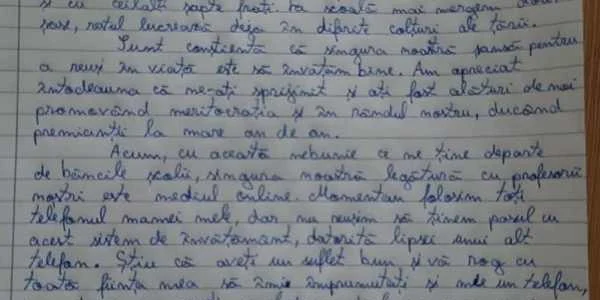 și cu ceilalți șapte frați. La școală mai mergem doar
șase, restul lucrează deja în diferite colțuri ale țării.
Sunt conștientă că singura noastră șansă pentru
a reuși în viață este să învățăm bine. Am apreciat
întodeauna că ne-ați sprijinit și ați fost alături de noi
promovând meritocrația și în rândul nostru, ducând
premianții la mare an de an.
Acum, cu această nebunie ce ne ține departe
de băncile școlii, singura noastră legătură cu profesorii
noștri este mediul online. Momentan folosim toți
telefonul mamei mele, dar nu reușim să ținem pasul cu
acest sistem de învățământ, datorită lipsei unui alt
telefon. Știu că aveți un suflet bun și vă rog cu
toată ființa mea să îmi împrumutați și mie un telefon,